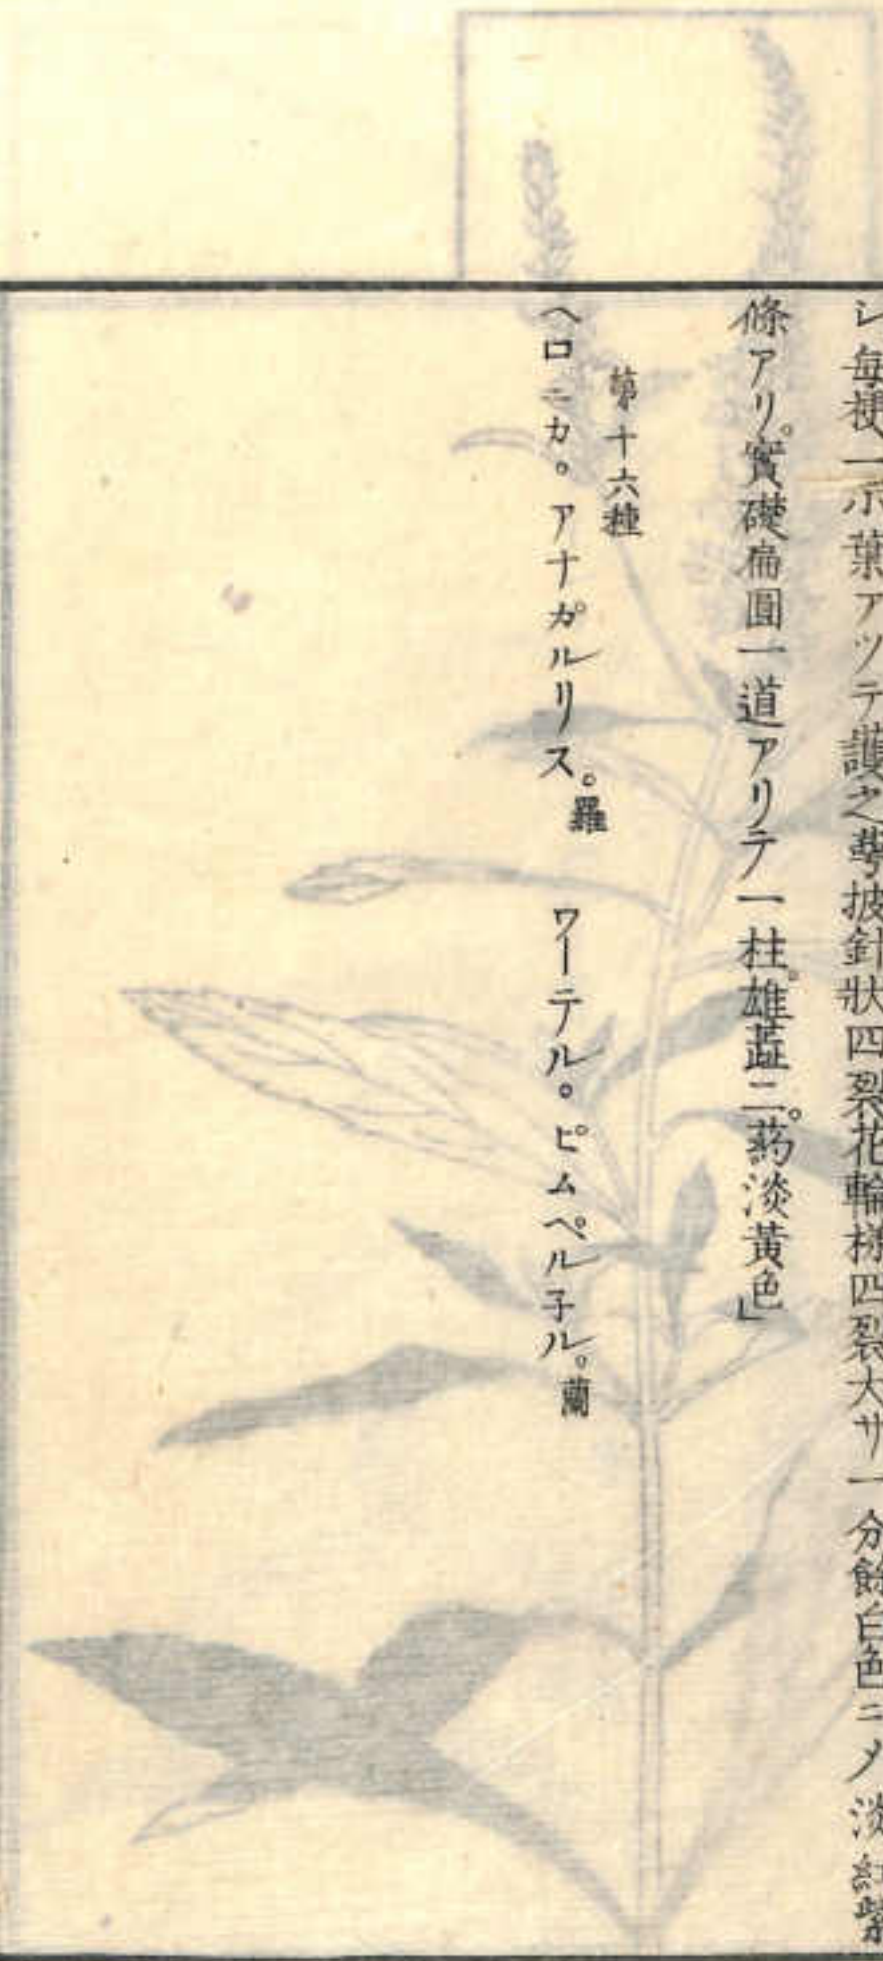 シ每梗一小葉アツテ護之萼披針狀四裂花輪樣四裂大サ一分餘白色ニメ淡紅紫
條アリ。實礎扁圓一道アリテ一柱。雄蕋二。葯淡黃色」
第十六種
ヘロニカ。アナガルリス。羅 ワーテル。ピムペル子ル。蘭